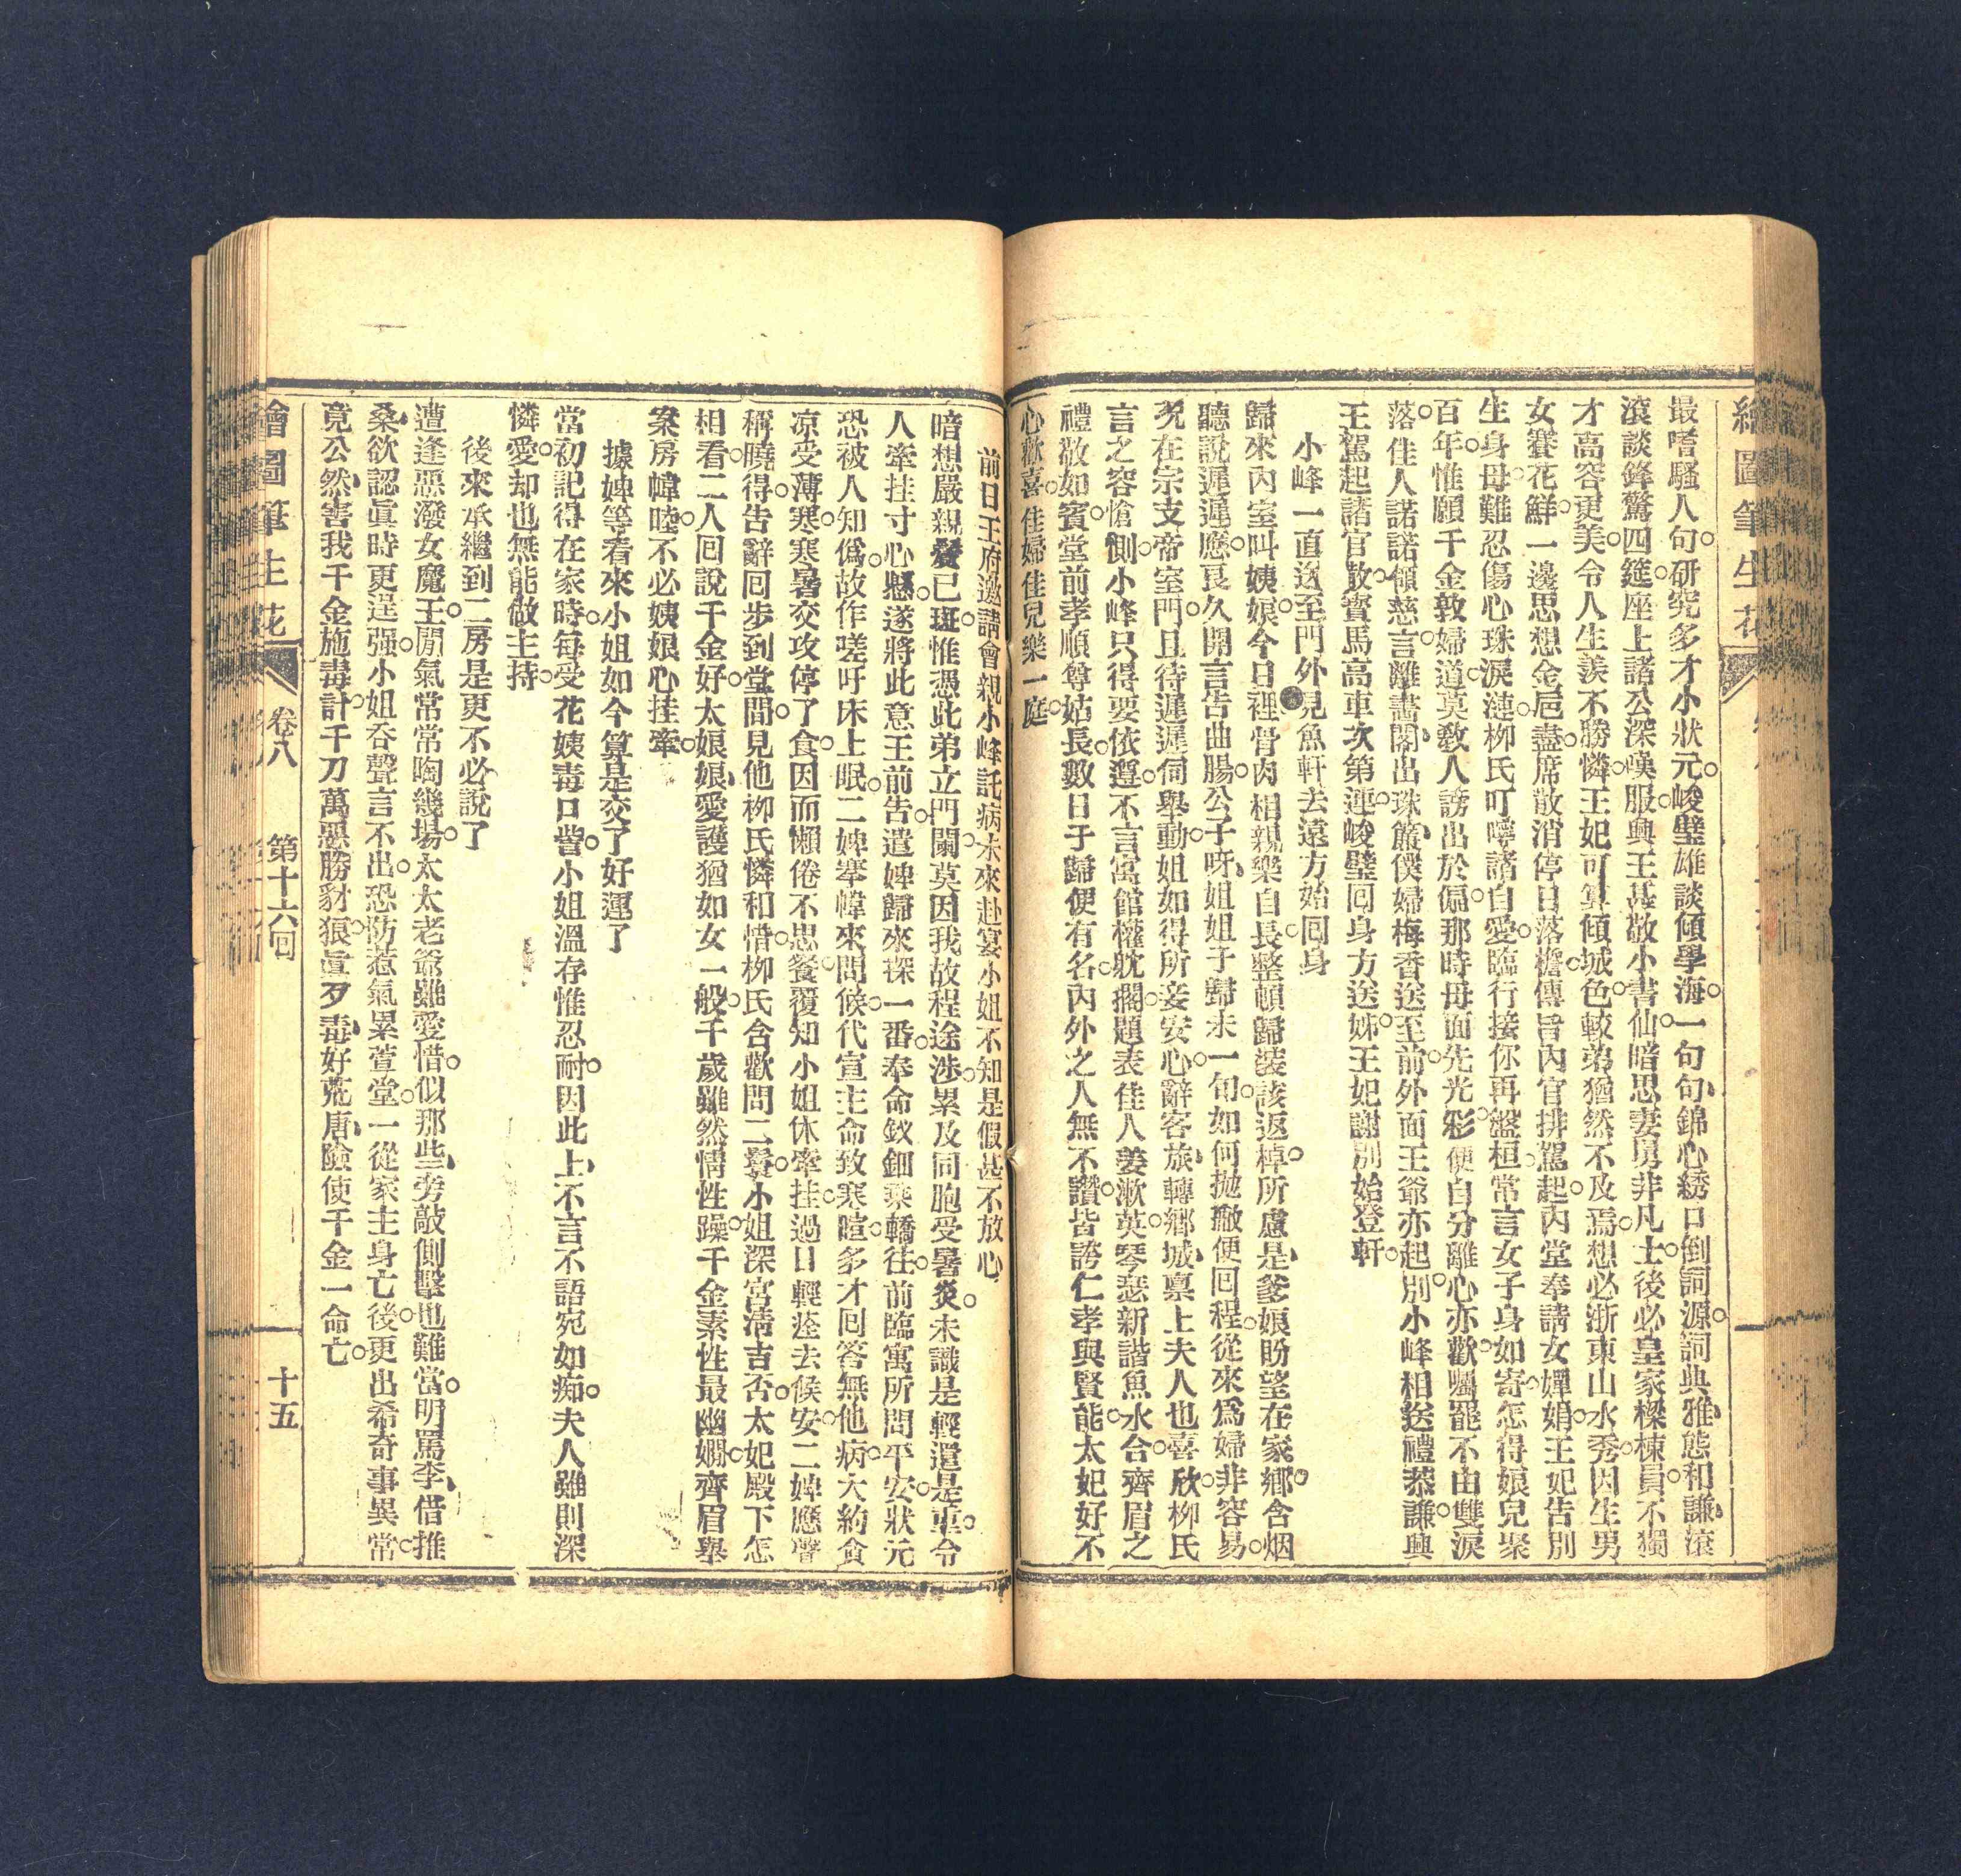 繪圖筆生花
最嗜騷人句。研究多才小狀元。峻璧雄談傾學海。一句句錦心綉口倒詞源。詞典雅態和謙。滾
滾談鋒驚四筵。座上諸公深嘆服。與王甚敬小書仙。暗思妻舅非凡士。後必皇家樑棟員。不獨
才高容更美。令人生羨不勝憐。王妃可算傾城色。較弟猶然不及焉。想必浙東山水秀。因生男
女賽花鮮。一邊思想金巵盡。席散消停日落檐。傳旨內官排駕起。內堂奉請女嬋娟。王妃告別
生身母。難忍傷心珠淚漣。柳氏叮嚀諸自愛。臨行接你再盤桓。常言女子身如寄。怎得娘兒聚
百年。惟願千金敦婦道。莫教人謗出於偏。那時母面先光彩。便自分離心亦歡。囑罷不由雙淚
落。佳人諾諾傾慈言。離書閣出珠簾。僕婦梅香送至前。外面王爺亦起別。小峰相送禮恭謙。興
王駕起諸官散。寶馬高車次第連。峻璧回身方送姊。王妃謝別始登軒。
小峰一直送至門外見魚軒去遠方始回身
歸來內室叫姨娘。今日裡骨肉相親樂自長。整頓歸裝該返棹。所慮是爹娘盼望在家鄉。含烟
聽說遲遲應。良久開言告曲腸。公子呀姐姐子歸未一旬。如何拋撇便回程。從來爲婦非容易。
況在宗支帝室門。且待遲遲伺舉動。姐如得所妾安心。辭客旅轉鄉城。稟上夫人也喜欣。柳氏
言之容愴惻。小峰只得要依遵。不言寓館權躭擱。題表佳人姜漱英。琴瑟新諧魚水合。齊眉之
禮敬如賓。堂前孝順尊姑長。數日于歸便有名。內外之人無不讚。皆誇仁孝與賢能。太妃好不
心歡喜。佳婦佳兒樂一庭。
前日王府邀請會親小峰託病未來赴宴小姐不知是假甚不放心
暗想嚴親鬢已斑。惟憑此弟立門闌。莫因我故程途涉。累及同胞受暑炎。未識是輕還是重。令
人牽挂寸心懸。遂將此意王前告。遣婢歸來探一番。奉命釵鈿乘轎往。前臨寓所問平安。狀元
恐被人知僞。故作嗟吁床上眠。二婢搴幃來問候。代宣主命致寒暄。多才回答無他病。大約貪
凉受薄寒。寒暑交攻停了食。因而懶倦不思餐。覆知小姐休牽挂。過日輕痊去候安。二婢應聲
稱曉得。告辭回步到堂間。見他柳氏憐和惜。柳氏含歡問二鬟。小姐深宮淸吉否。太妃殿下怎
相看。二人回說千金好。太娘娘愛護猶如女一般。千歲雖然情性躁。千金素性最幽嫻。齊眉舉
案房幃睦。不必姨娘心挂牽。
據婢等看來小姐如今算是交了好運了
當初記得在家時。每受花姨毒口訾。小姐溫存惟忍耐。因此上不言不語宛如痴。夫人雖則深
憐愛。却也無能做主持。
後來承繼到二房是更不必說了
遭逢惡潑女魔王。閒氣常常啕幾場。太太老爺雖愛惜。似那些旁敲側擊也難當。明罵李借推
桑。欲認眞時更逞强。小姐吞聲言不出。恐防惹氣累萱堂。一從家主身亡後。更出希奇事異常。
竟公然害我千金施毒計。千刀萬惡勝豺狼。眞歹毒好荒唐。險使千金一命亡。
繪圖筆生花 卷八 第十六回 十五